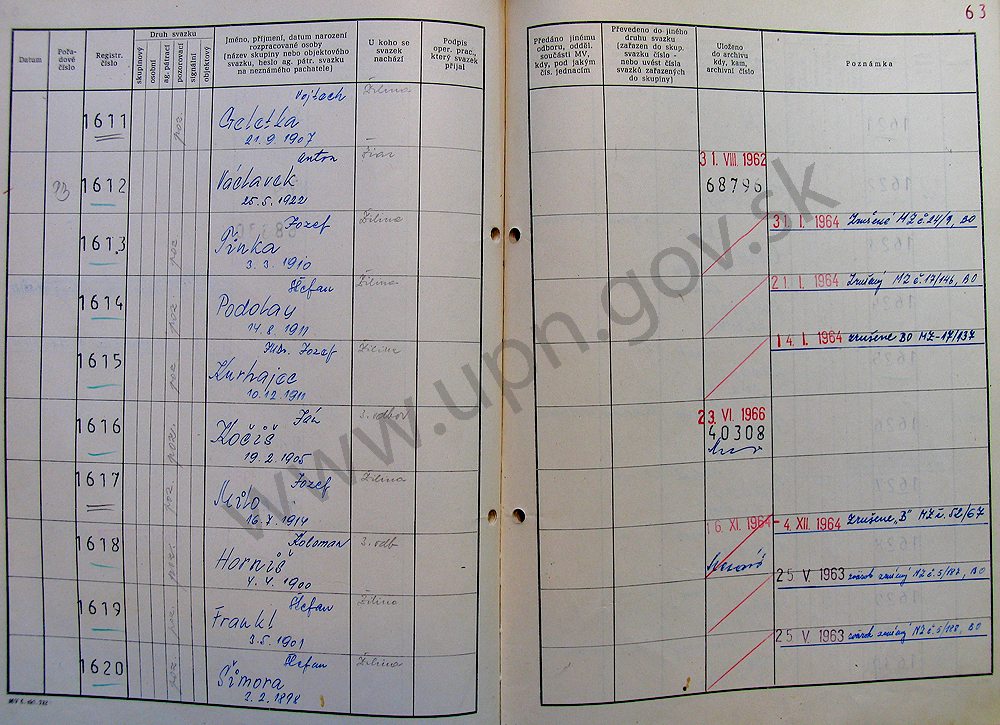 63
Datum
Pořadové číslo
Registr. číslo
Druh svazku
skupinový
osobní
ag. pátrací
pozorovací
signální
objektový
Jméno, příjmení, datum narození
rozpracované osoby
(název skupiny nebo objektového
svazku, heslo ag. pátr. svazku
na neznámého pachatele)
U koho se
svazek
nachází
Podpis
oper. prac.,
který svazek
přijal
Předáno jinému
odboru, odděl.
součásti MV,
kdy, pod jakým
čís. jednacím
Převedeno do jiného
druhu svazku
(zařazen do skup.
svazku číslo -
nebo uvést čísla
svazků zařazených
do skupiny)
Uloženo
do archivu
kdy, kam,
archivní číslo
Poznámka
1611 poz. Geletka Vojtech Žilina
21.9.1907
93 1612 Václavek Anton
25.5.1922
31. VIII. 1962
68796
1613 poz Pinka Jozef Žilina
3.3.1910
31. I. 1964 Zrušené MZ č. 24/9, BO
1614 poz Podolay Štefan Žilina
14.8.1911
21. I. 1964 Zrušený MZ č. 17/146, BO
1615 poz Kurhajec Jozef Žilina
10.12.1911
14. I. 1964 zrušene BO MZ-17/137
1616 poz. Kočiš Ján 3. odbor
19.2.1905
23. VI 1966
40308
1617 poz Milo Jozef Žilina
16.7.1914
1618 poz Horniš Koloman 3. odb
4.4.1900
16. XI. 1964 - 4. XII. 1964 Zrušene "B" MZ č. 52/67
1619 poz Frankl Štefan Žilina
3.5.1901
25 V. 1963 zväzok zrušený MZ č. 5/187, BO
1620 poz Šimora Štefan Žilina
2.2.1898
25 V. 1963 zväzok zrušený MZ č. 5/188, BO
www.upn.gov.sk